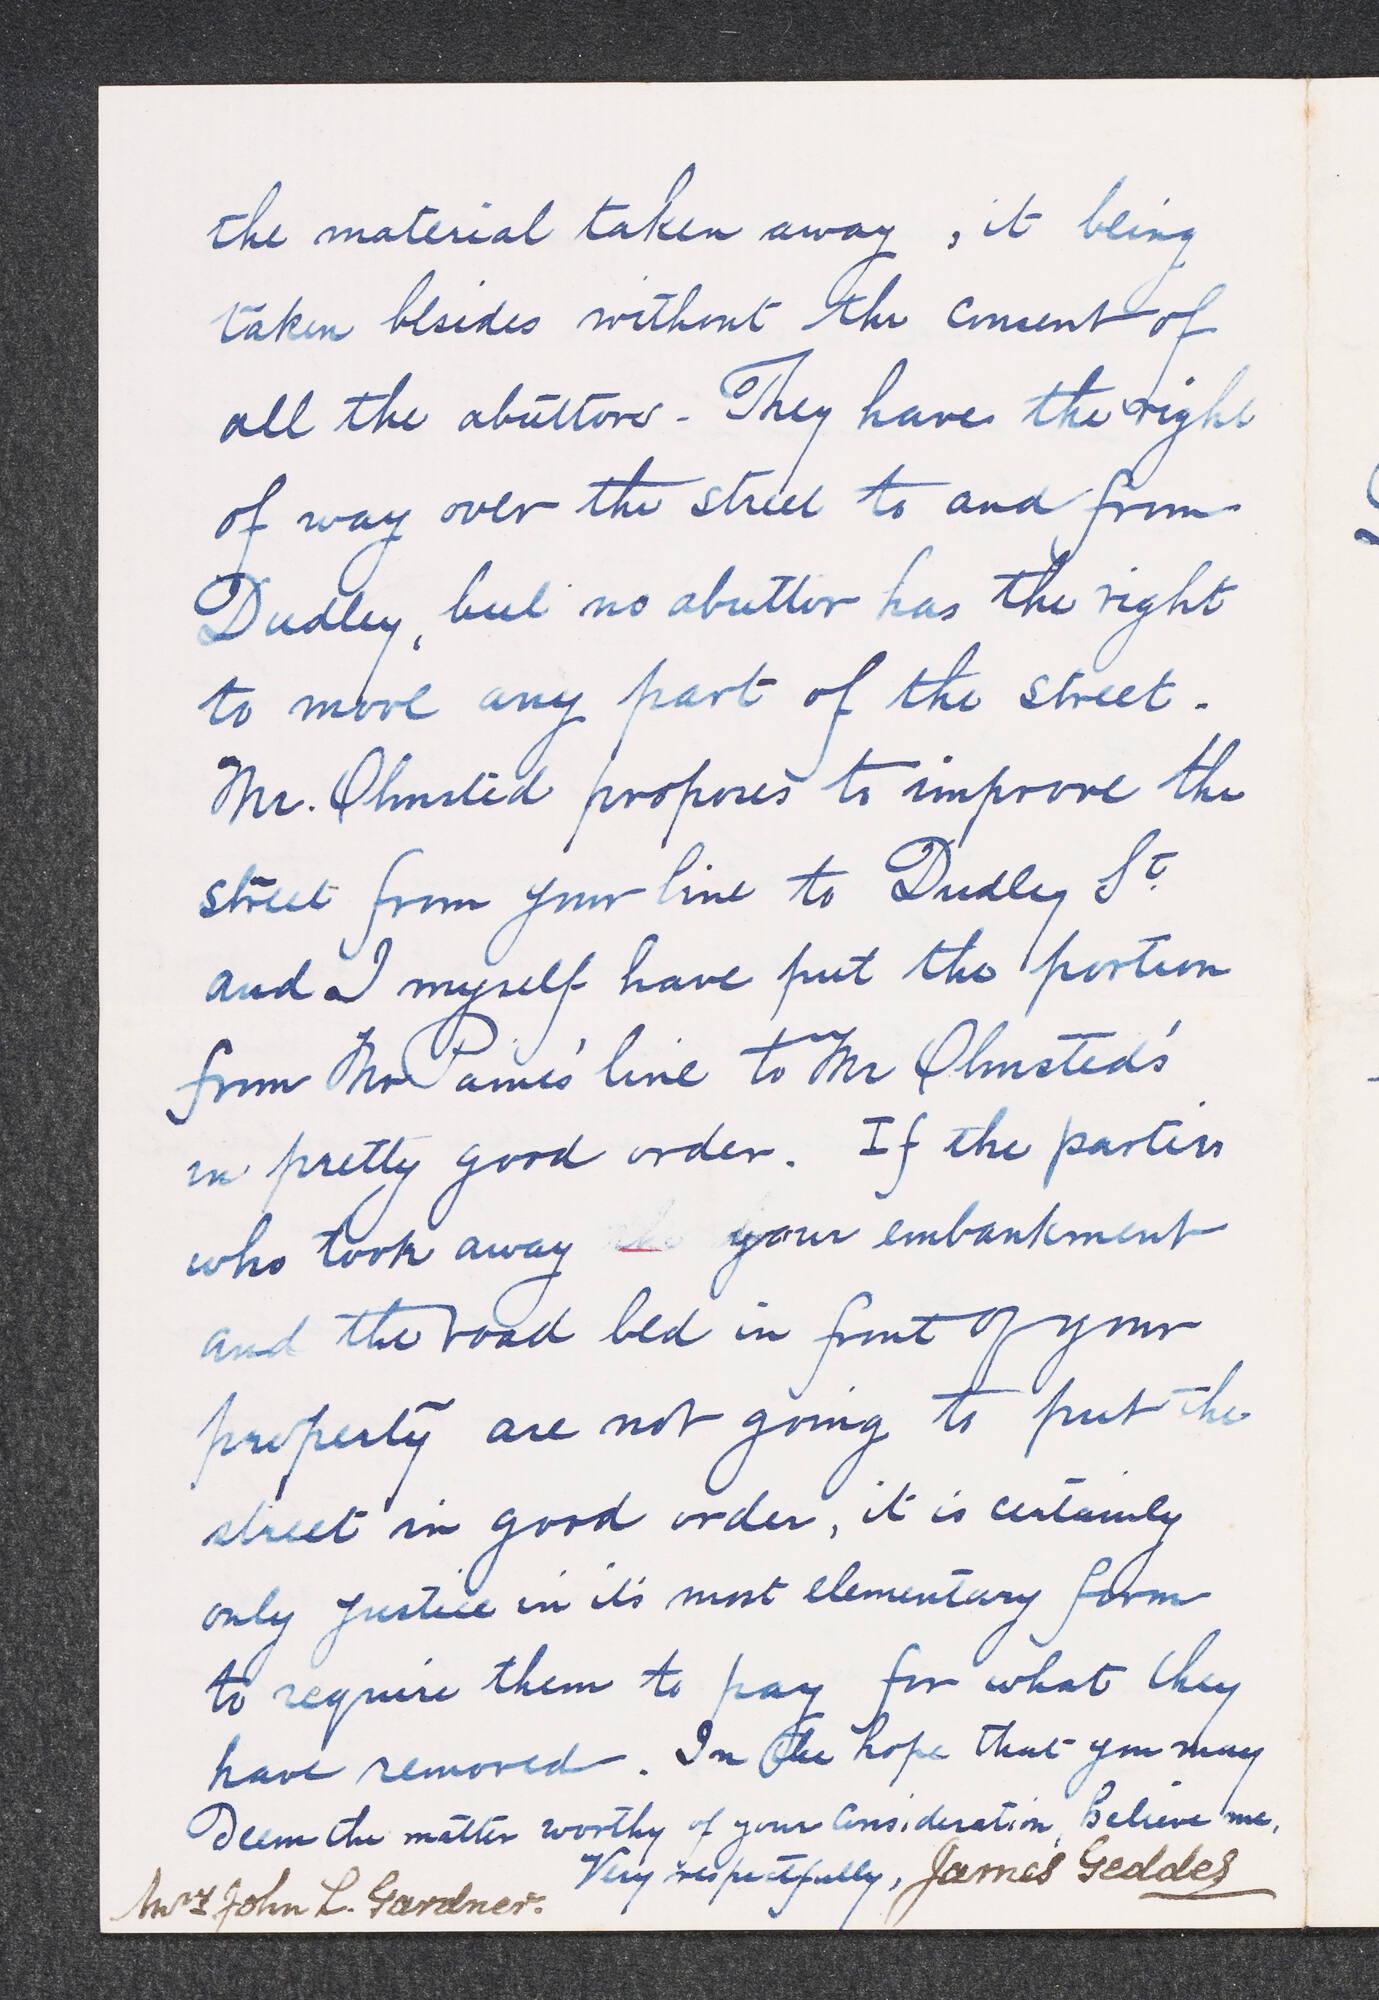 the material taken away, it being
taken besides without the consent of
all the abuttors - They have the right
of way over the street to and from
Dudley, but no abuttor has the right
to move any part of the street.
Mr. Olmsted proposes to improve the
street from your line to Dudley St.
and I myself have put the portion
from Mr Paine's line to Mr Olmsted's
in pretty good order. If the parties
who took away your embankment
and the road bed in front of your
property are not going to put the
street in good order, it is certainly
only justice in it's most elementary form
to require them to pay for what they
have removed. In the hope that you may
Deem the matter worthy of your consideration, believe me,
Very respectfully, James Geddes
Mrs John L. Gardner.